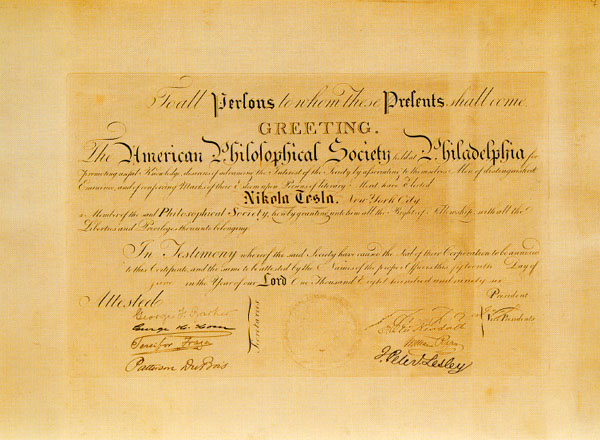 To all Persons to whom these Presents shall come
GREETING.
The American Philosophical Society held at Philadelphia for
promoting useful Knowledge, desirous of advancing the Interest of the Society by associating to themselves Men of distinguished
Eminence, and of conferring Marks of their Esteem upon Persons of literary Merit, have Elected
Nikola Tesla, New York City
a Member of the said Philosophical Society, hereby granting unto him all the Right of Fellowship, with all the
Liberties and Privileges thereunto belonging.
In Testimony whereof the said Society have caused the Seal of their Corporation to be annexed
to this Certificate, and the same to be attested by the Names of the proper Officers this fifteenth Day of
in the Year of our Lord One Thousand Eight hundred and ninety-six
Attested
President
Vice Presidents
Secretaries
George H. Horn
Persifor Frazer
Patterson DuBois
J. Peter Lesley